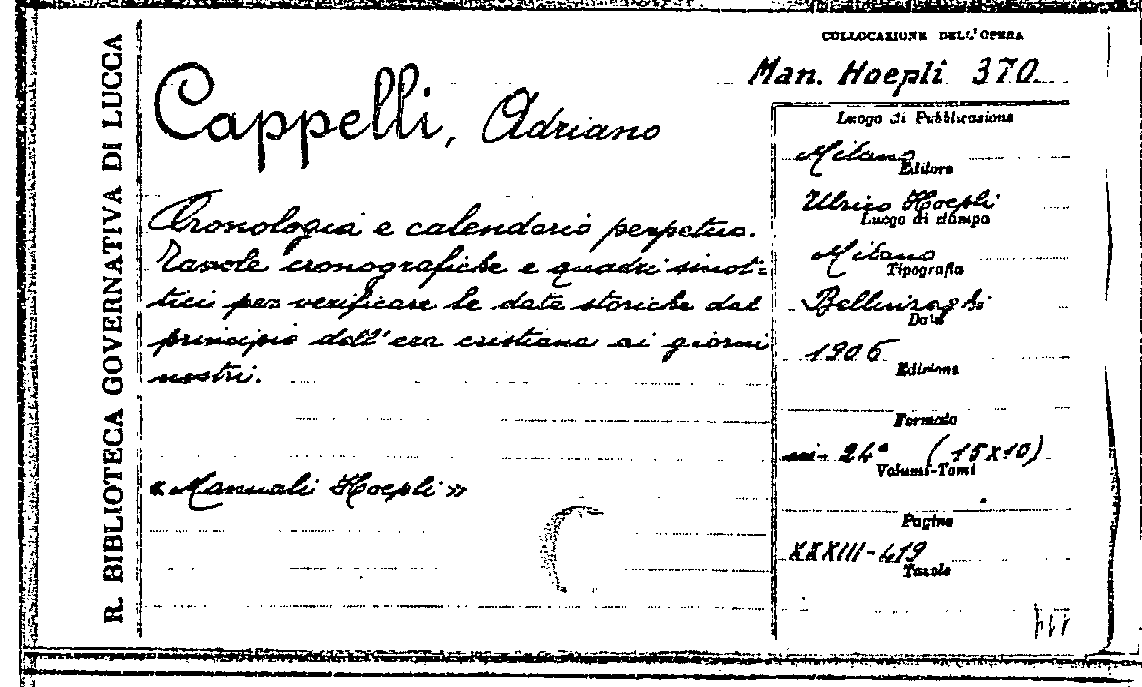 R. BIBLIOTECA GOVERNATIVA DI LUCCA
COLLOCAZIONE DELL'OPERA
Man. Hoepli 370
Cappelli, Adriano
Cronologia e calendario perpetuo.
Tavole cronografiche e quadri sinot=
tici per verificare le date storiche dal
principio dell'era cristiana ai giorni
nostri.
«Manuali Hoepli»
Luogo di Pubblicazione
Milano
Editore
Ulrico Hoepli
Luogo di stampa
Milano
Tipografia
Bellinzaghi
Data
1906
Edizione
Formato
in-24° (15x10)
Volumi-Tomi
Pagine
XXXIII-419
Tavole